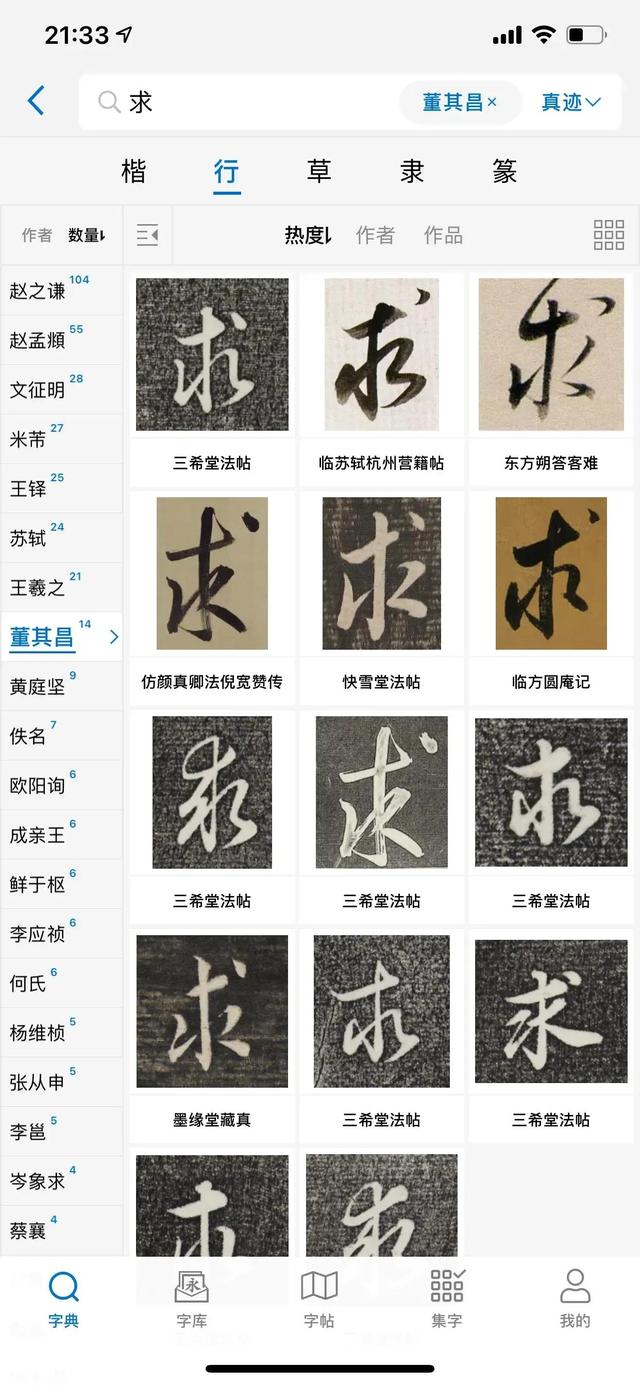 21:33
求 董其昌× 真迹
楷 行 草 隶 篆
作者 数量 热度 作者 作品
赵之谦 104
赵孟頫 55
文征明 28
米芾 27
王铎 25
苏轼 24
王羲之 21
董其昌 14
黄庭坚 9
佚名 7
欧阳询 6
成亲王 6
鲜于枢 6
李应祯 6
何氏 6
杨维桢 5
张从申 5
李邕 5
岑象求 4
蔡襄 4
求 求 求
三希堂法帖 临苏轼杭州营籍帖 东方朔答客难
求 求 求
仿颜真卿法倪宽赞传 快雪堂法帖 临方圆庵记
求 求 求
三希堂法帖 三希堂法帖 三希堂法帖
求 求 求
墨缘堂藏真 三希堂法帖 三希堂法帖
求 求
永
字典 字库 字帖 集字 我的